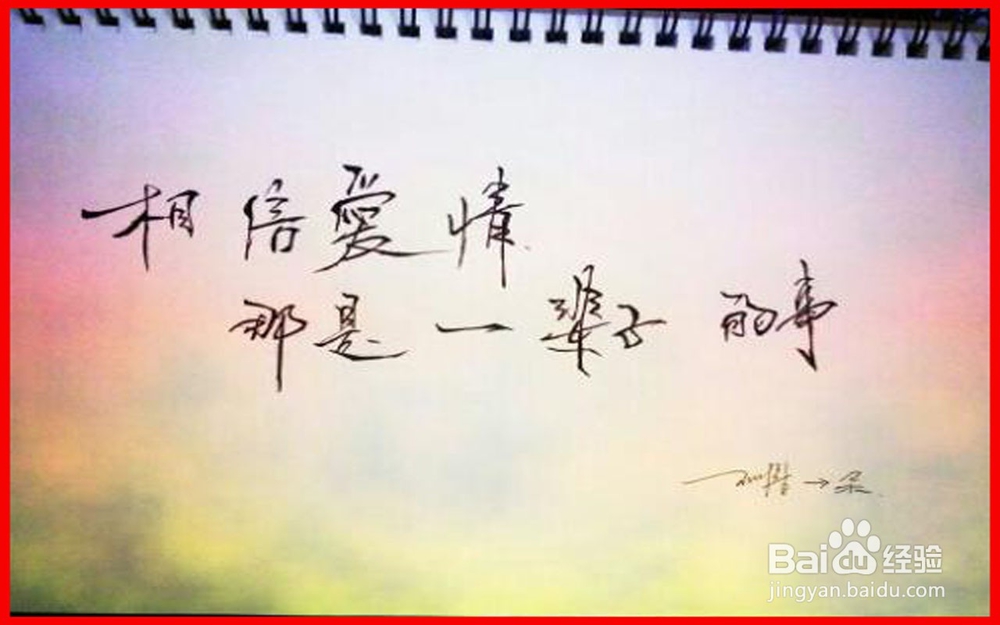 相信爱情
那是一辈子的事
→朵
Baidu经验
jingyan.baidu.com